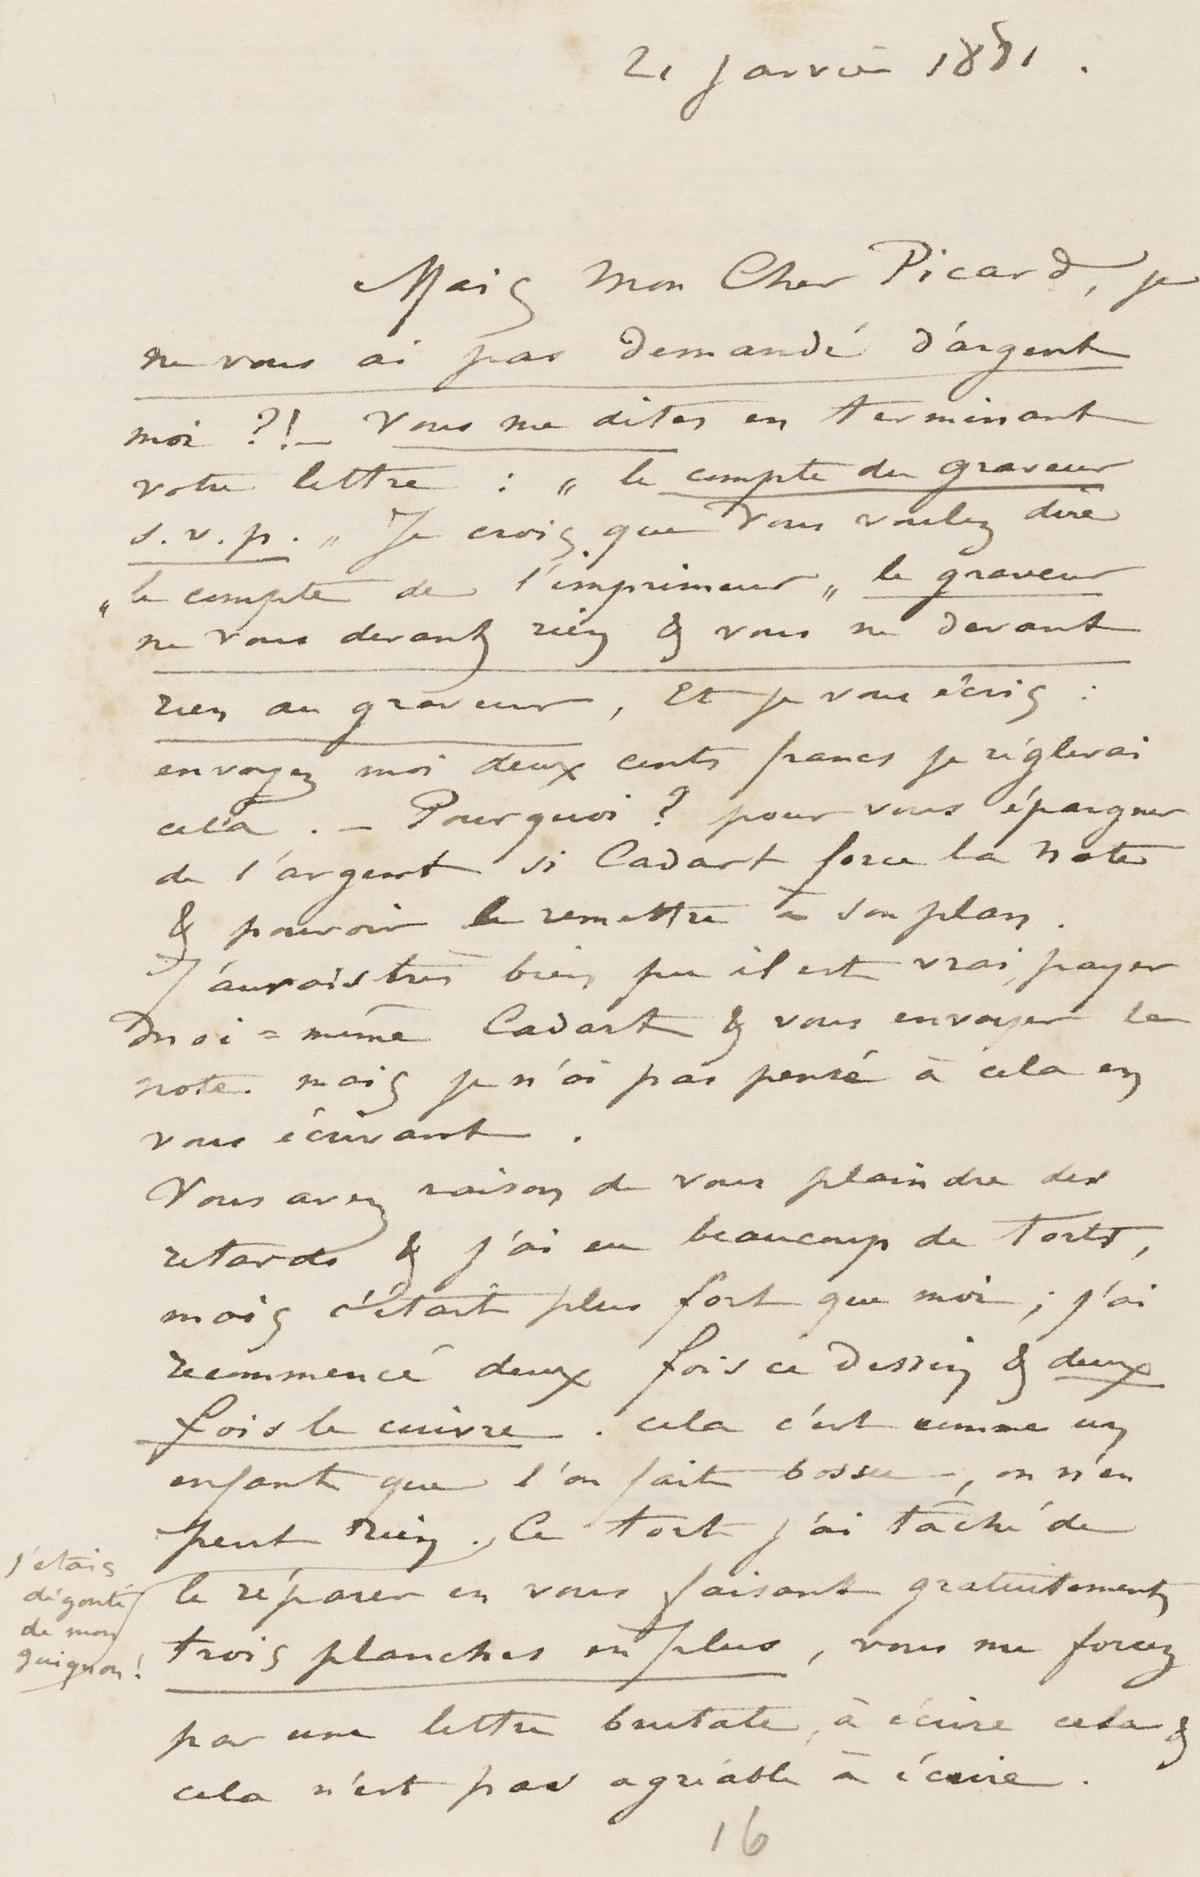 21 Janvier 1881.
Mais mon Cher Picard, je
ne vous ai pas demandé d'argent
moi ?! — Vous me dites en terminant
votre lettre : „ le compte du graveur
s.v.p. „ Je crois que vous voulez dire
„ le compte de l'imprimeur „ le graveur
ne vous devant rien & vous ne devant
rien au graveur, Et je vous écris :
envoyez moi deux cents francs je réglerai
cela. — Pourquoi ? pour vous épargner
de l'argent si Cadart force la note
& pouvoir le remettre à son plan.
J'aurais très bien pu il est vrai, payer
moi=même Cadart & vous envoyer la
note. mais je n'ai pas pensé à cela en
vous écrivant.
Vous avez raison de vous plaindre des
retards & j'ai eu beaucoup de torts,
mais c'était plus fort que moi ; j'ai
recommencé deux fois ce dessin & deux
fois le cuivre. cela c'est comme un
enfant que l'on fait bossu —, on n'en
peut rien. Ce tort j'ai tâché de
le réparer en vous faisant gratuitement
trois planches en plus, vous me forcez
par une lettre brutale, à écrire cela &
cela n'est pas agréable à écrire.
j'etais
dégouté
de mon
guignon !
16